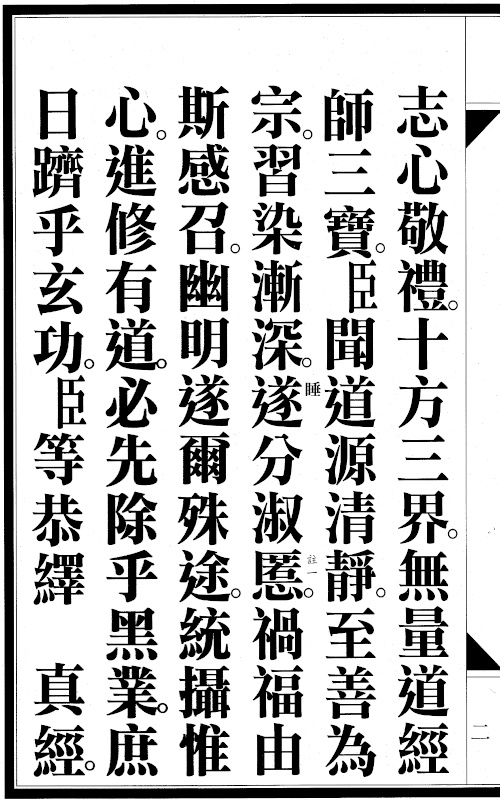 志心敬禮。十方三界。無量道經
師三寶。臣聞道源清靜。至善為
宗。習染漸深。遂分淑慝。禍福由
斯感召。幽明遂爾殊途。統攝惟
心。進修有道。必先除乎黑業。庶
日躋乎玄功。臣等恭繹　真經。
睡
註一
二